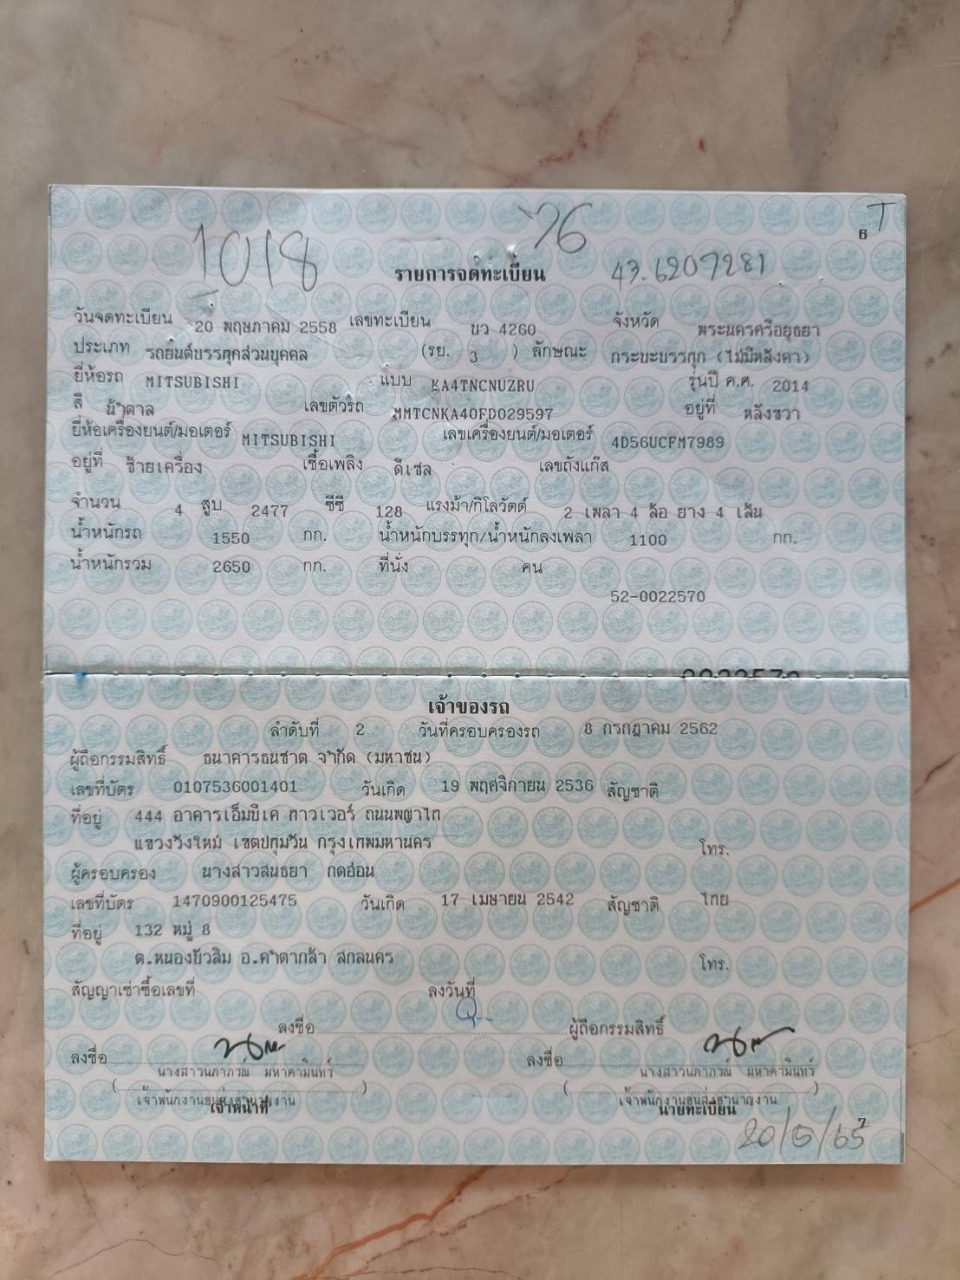 T
6
1018
76
รายการจดทะเบียน
43.6207281
วันจดทะเบียน 20 พฤษภาคม 2558 เลขทะเบียน บว 4260 จังหวัด พระนครศรีอยุธยา
ประเภท รถยนต์บรรทุกส่วนบุคคล (รย. 3 ) ลักษณะ กระบะบรรทุก (ไม่มีหลังคา)
ยี่ห้อรถ MITSUBISHI แบบ KA4TNCNUZRU รุ่นปี ค.ศ. 2014
สี น้ำตาล เลขตัวรถ MMTCNKA40FD029597 อยู่ที่ หลังขวา
ยี่ห้อเครื่องยนต์/มอเตอร์ MITSUBISHI เลขเครื่องยนต์/มอเตอร์ 4D56UCFM7989
อยู่ที่ ซ้ายเครื่อง เชื้อเพลิง ดีเซล เลขถังแก๊ส
จำนวน 4 สูบ 2477 ซีซี 128 แรงม้า/กิโลวัตต์ 2 เพลา 4 ล้อ ยาง 4 เส้น
น้ำหนักรถ 1550 กก. น้ำหนักบรรทุก/น้ำหนักลงเพลา 1100 กก.
น้ำหนักรวม 2650 กก. ที่นั่ง คน
52-0022570
เจ้าของรถ
ลำดับที่ 2 วันที่ครอบครองรถ 8 กรกฎาคม 2562
ผู้ถือกรรมสิทธิ์ ธนาคารธนชาต จำกัด (มหาชน)
เลขที่บัตร 0107536001401 วันเกิด 19 พฤศจิกายน 2536 สัญชาติ
ที่อยู่ 444 อาคารเอ็มบีเค ทาวเวอร์ ถนนพญาไท
แขวงวังใหม่ เขตปทุมวัน กรุงเทพมหานคร โทร.
ผู้ครอบครอง นางสาวสนธยา กดอ่อน
เลขที่บัตร 1470900125475 วันเกิด 17 เมษายน 2542 สัญชาติ ไทย
ที่อยู่ 132 หมู่ 8
ต.หนองบัวสิม อ.คำตากล้า สกลนคร โทร.
สัญญาเช่าซื้อเลขที่ ลงวันที่
ลงชื่อ ผู้ถือกรรมสิทธิ์
ลงชื่อ ลงชื่อ
นางสาวนภาภรณ์ มหาคามินทร์ นางสาวนภาภรณ์ มหาคามินทร์
( ) ( )
เจ้าพนักงานขนส่งชำนาญงาน เจ้าพนักงานขนส่งชำนาญงาน
เจ้าหน้าที่ นายทะเบียน
7
20/5/65